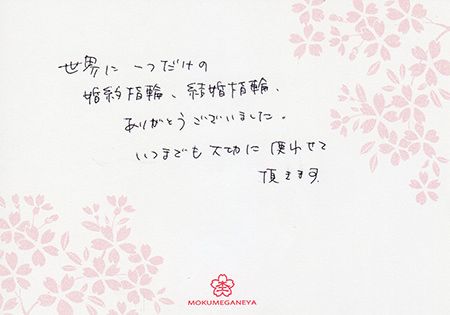 世界に一つだけの
婚約指輪、結婚指輪、
ありがとうございました。
いつまでも大切に使わせて
頂きます。
MOKUMEGANEYA